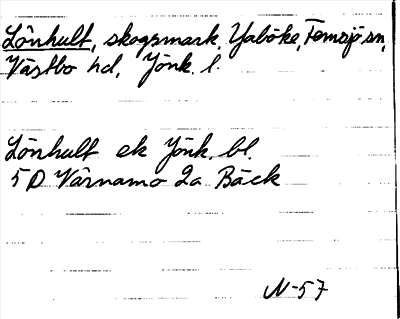 Lönhult, skogsmark, Yaböke, Femsjö sn,
Västbo hd, Jönk. l.
Lönhult ek Jönk. bl.
5 D Värnamo 2a Bäck
N-57